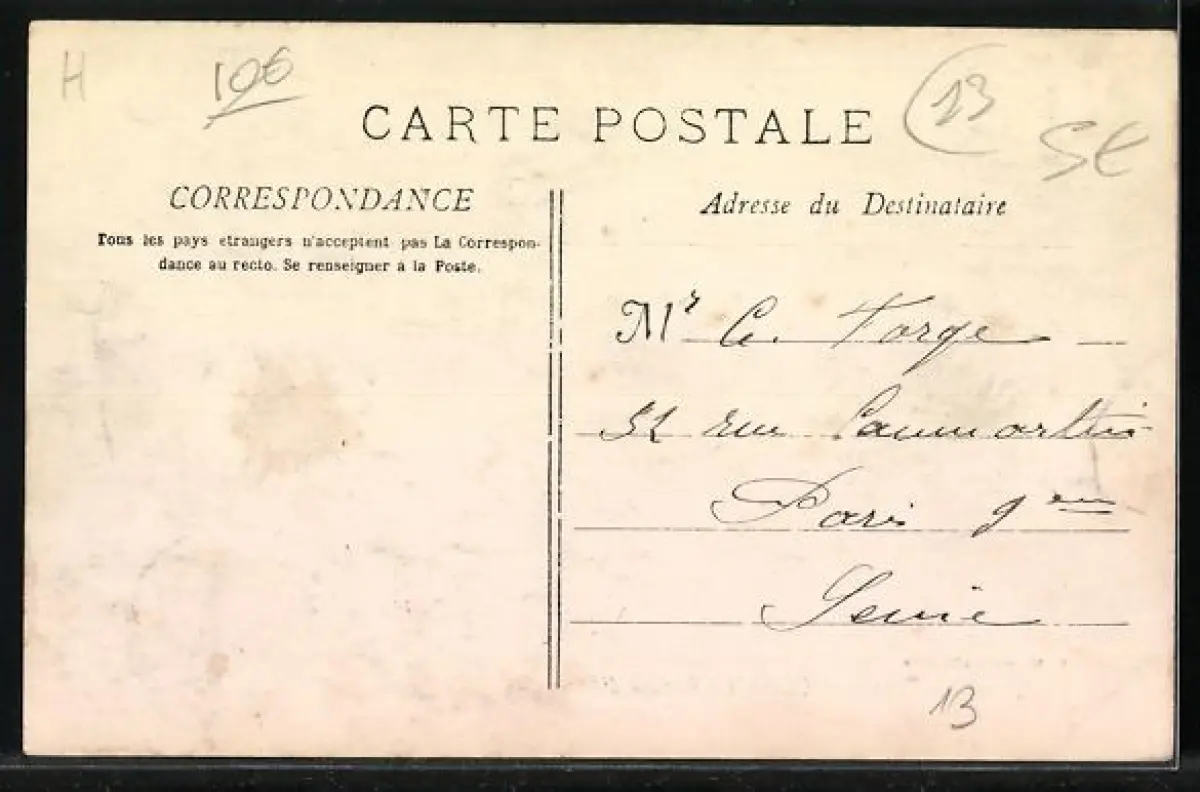 H
106
CARTE POSTALE
13
5€
CORRESPONDANCE
Adresse du Destinataire
Tous les pays etrangers n'acceptent pas La Correspon-
dance au recto. Se renseigner a la Poste.
Mr C. Torge
rue Caumartin
Paris 9eme
Seine
13